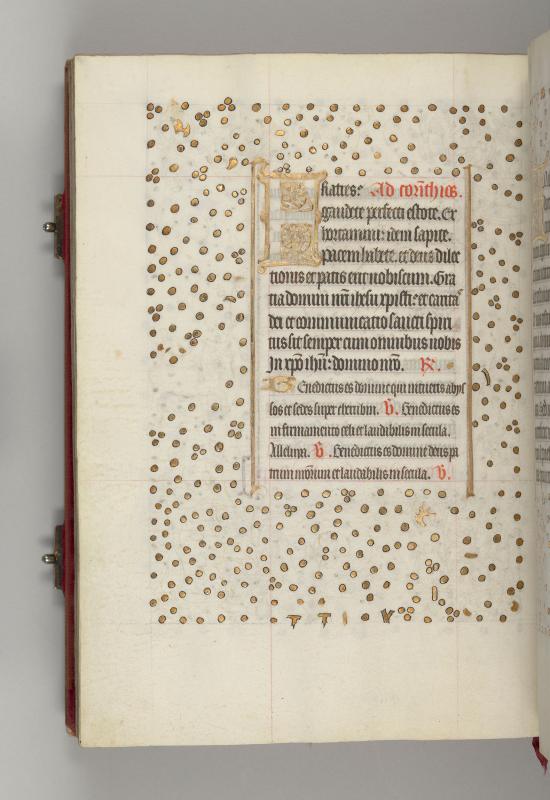 Fratres: Ad corinthios.
gaudete perfecti estote. Ex
hortamini: idem sapite.
pacem habete. et deus dilec
tionis et pacis erit nobiscum. Gra
tia domini nri ihesu xpisti: et carita
dei et communicatio sancti spiri
tus sit semper cum omnibus nobis
In xpo ihu: domino nro. R.
Benedictus es domine qui intueris abys
sos et sedes super cherubim. V. Benedictus es
in firmamento celi et laudibilis in secula.
Alleluya. V. Benedictus es domine deus pa
trum nostrum et laudibilis in secula. V.